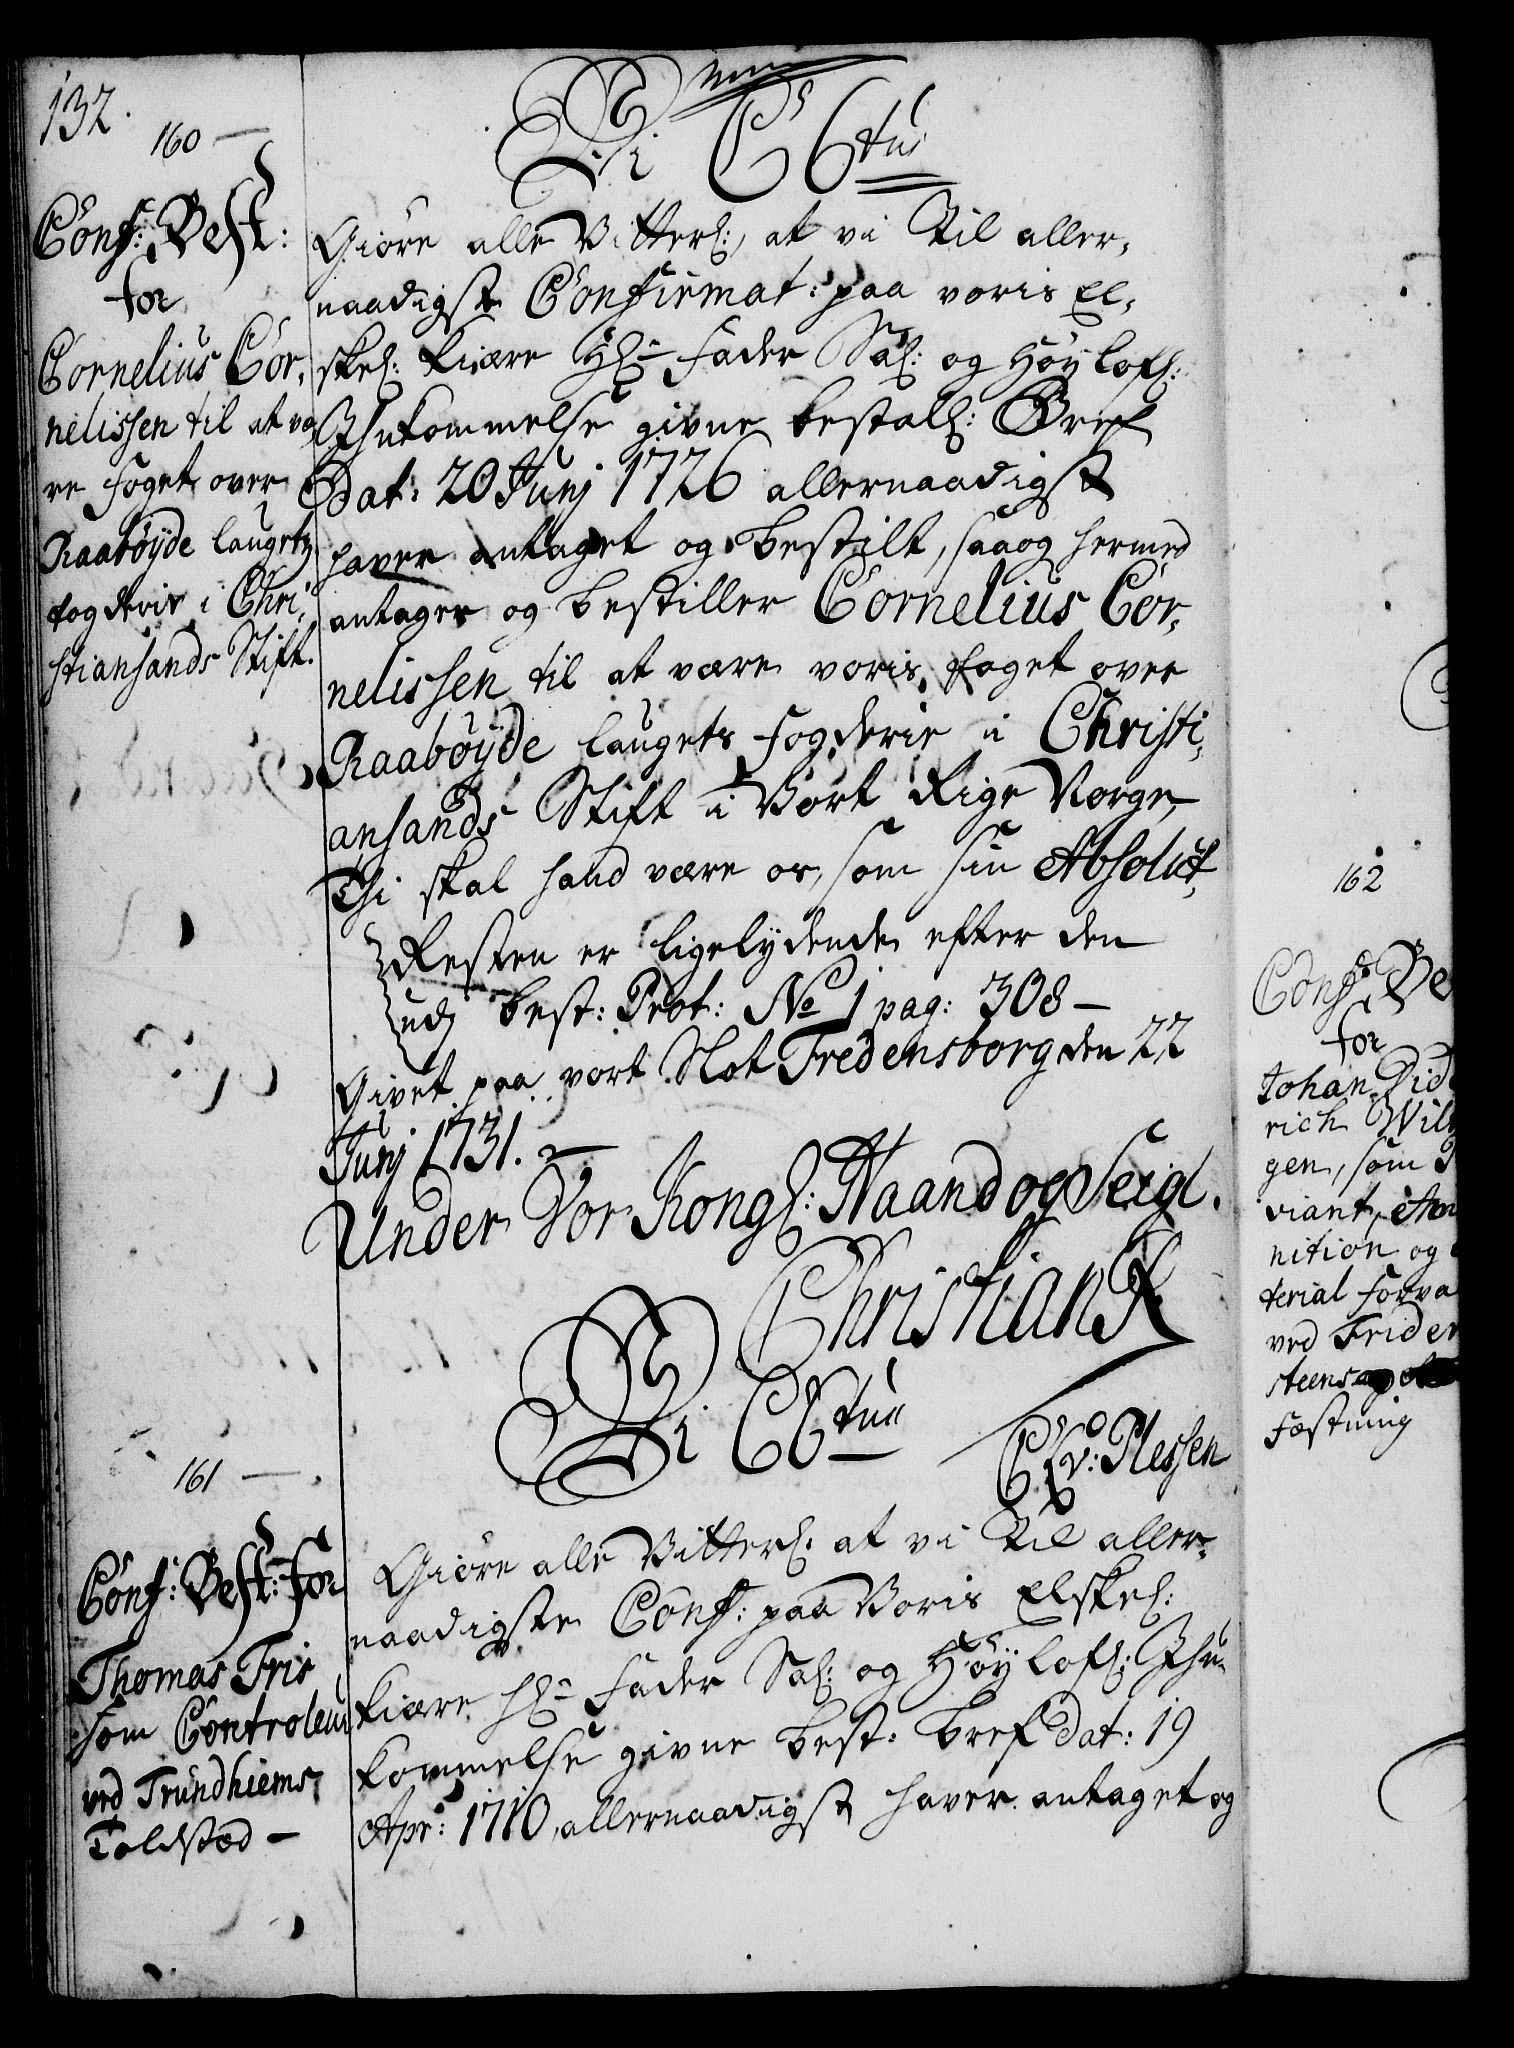 132.
160 —
Conf: Best:
for
Cornelius Cor,
nelissen til at væ
re foget over
Raabøyde laugetz
fogderie i Chri,
stiansands Stift.
Vi C 6tus
Giöre alle Vitterl:, at vi Til aller,
naadigste Confirmat: paa voris El,
skel: Kiære Hr Fader Sal: og Höylofl:
Ihukommelse givne bestall: Bref
Dat: 20 Junj 1726 allernaadigst
haver antaget og bestilt, saaog hermed
antager og bestiller Cornelius Cor,
nelissen til at være voris foget over
Raaböyde laugets fogderie i Christi,
ansands Stift i Vort Rige Norge,
Thi skal hand være os, som sin Absolut,
Resten er ligelydende efter den
udj best: Prot: No 1 pag: 308 —
Givet paa vort Slot Fredensborg den 22
Junj 1731. —
Under Vor Kongl: Haand og Seigl.
Christian R
C A v: Plessen
161 —
Conf: Best: for
Thomas Fris
som Controleur
ved Trundhiems
Toldsted —
Vi C 6tus
Giöre alle Vitterl: at vi Til aller,
naadigste Conf: paa Voris Elskel:
Kiære Hr Fader Sal: og Höylofl: Ihu,
kommelse givne best: bref dat: 19
Apr: 1710, allernaadigst haver antaget og
162
Conf: Be
for
Johan Did
rich Wil
gen, som P
viant, Am
nition og
terial forva
ved Frider
steens
Fæstning